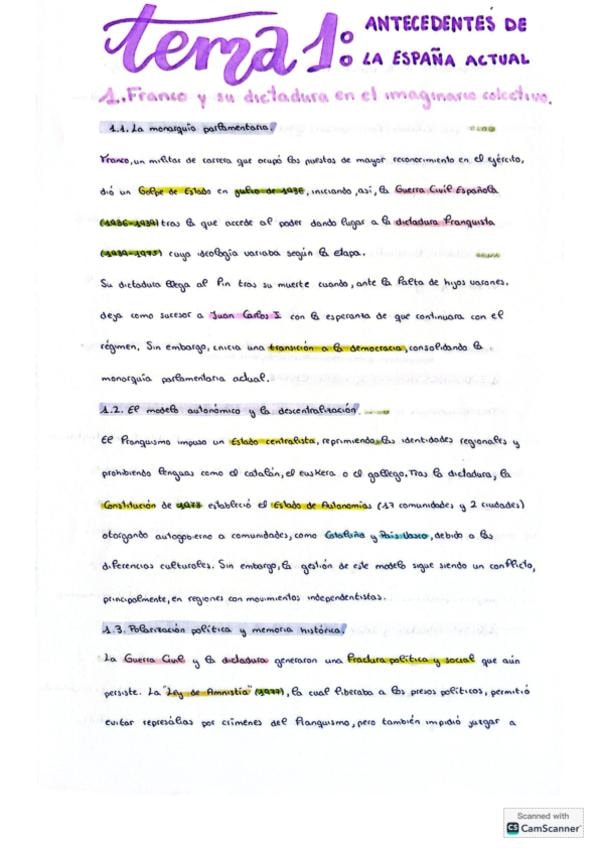 tema 1:
ANTECEDENTES DE
LA ESPAÑA ACTUAL
1. Franco y su dictadura en el imaginario colectivo.
1.1. La monarquía parlamentaria.
Franco, un militar de carrera que ocupó los puestos de mayor reconocimiento en el ejército,
dió un Golpe de Estado en julio de 1936, iniciando, así, la Guerra Civil Española
(1936-1939) tras la que accede al poder dando lugar a la dictadura franquista
(1939-1975) cuya ideología variaba según la etapa.
Su dictadura llega al fin tras su muerte cuando, ante la falta de hijos varones,
deja como sucesor a Juan Carlos I con la esperanza de que continuara con el
régimen. Sin embargo, inicia una transición a la democracia, consolidando la
monarquía parlamentaria actual.
1.2. El modelo autonómico y la descentralización.
El franquismo impuso un Estado centralista, reprimiendo las identidades regionales y
prohibiendo lenguas como el catalán, el euskera o el gallego. Tras la dictadura, la
Constitución de estableció el Estado de Autonomías (17 comunidades y 2 ciudades)
otorgando autogobierno a comunidades, como Cataluña y País Vasco, debido a las
diferencias culturales. Sin embargo, la gestión de este modelo sigue siendo un conflicto,
principalmente, en regiones con movimientos independentistas.
1.3. Polarización política y memoria histórica.
La Guerra Civil y la dictadura generaron una fractura política y social que aún
persiste. La "Ley de Amnistía" (1977), la cual liberaba a los presos políticos, permitió
evitar represálias por crímenes del franquismo, pero también impidió juzgar a
Scanned with
CS CamScanner